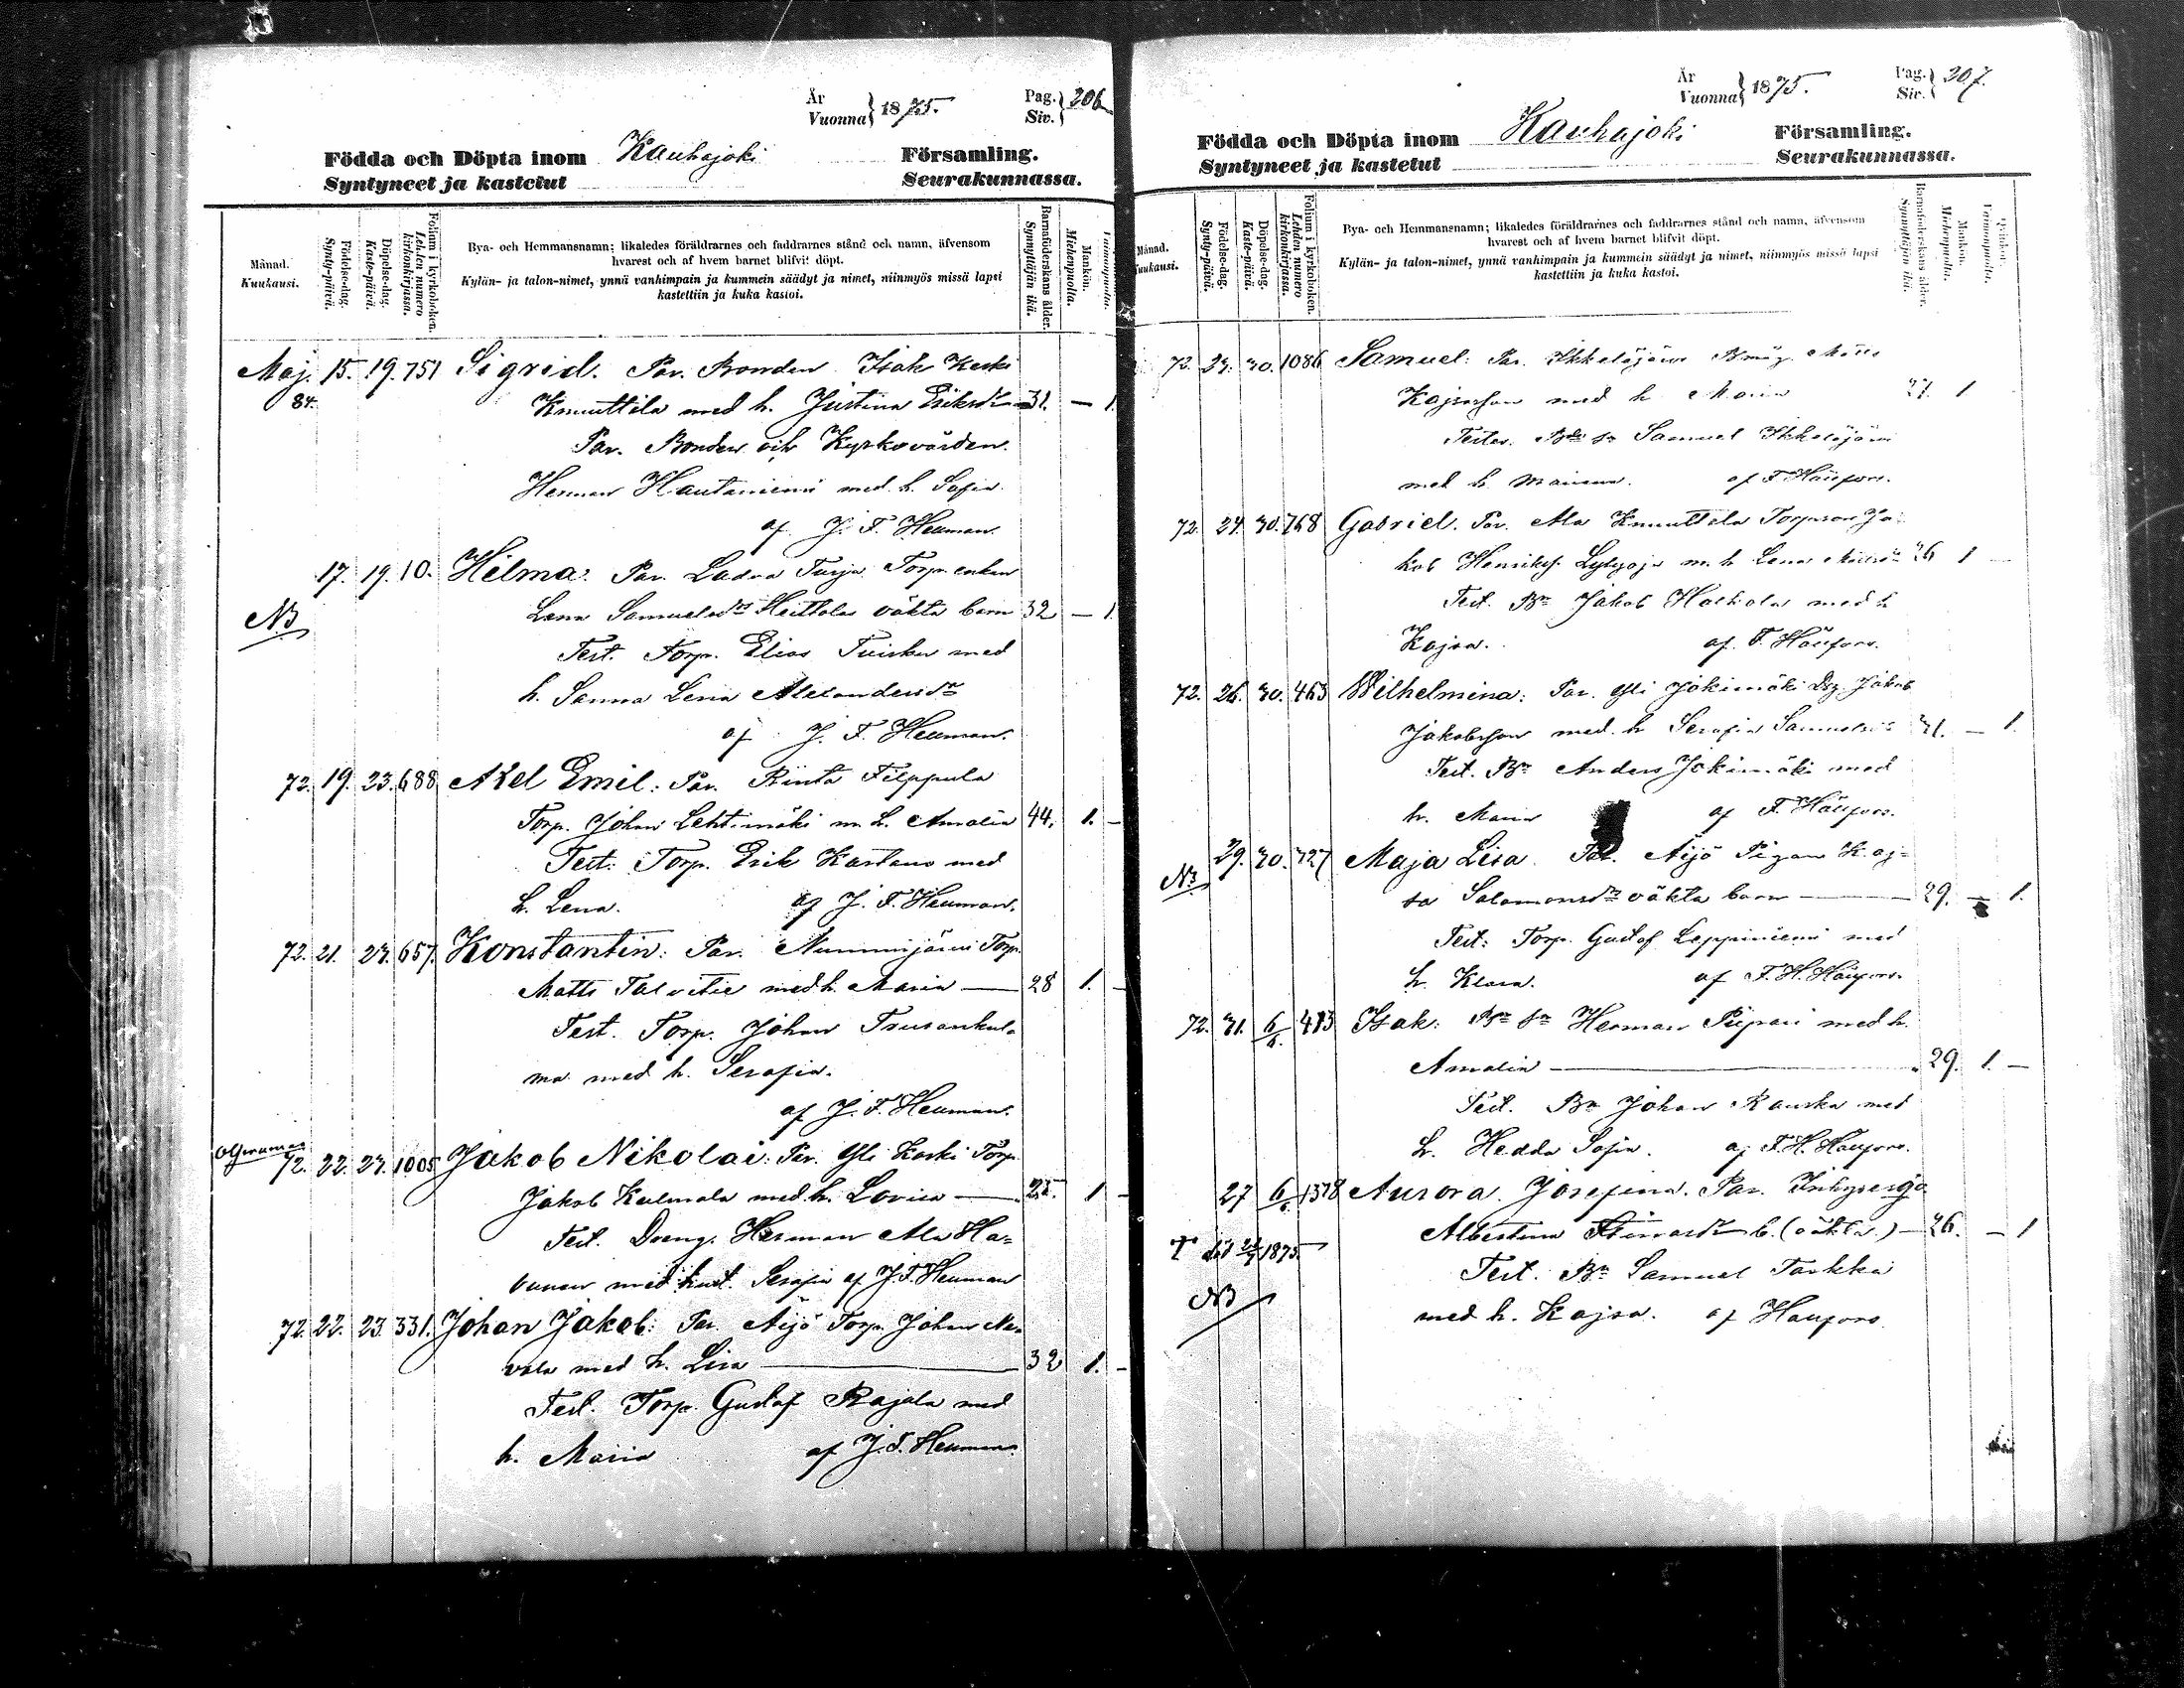 År
Vuonna } 1875.
Pag.
Siv. } 206
Födda och Döpta inom Kauhajoki Församling.
Syntyneet ja kastetut Seurakunnassa.
Månad.
Kuukausi.
Födelse-dag.
Synty-päivä.
Döpelse-dag.
Kaste-päivä.
Folium i kyrkoboken.
Lehden numero kirkonkirjassa.
Bya- och Hemmansnamn; likaledes föräldrarnes och faddrarnes stånd och namn, äfvensom
hvarest och af hvem barnet blifvit döpt.
Kylän- ja talon-nimet, ynnä vanhimpain ja kummein säädyt ja nimet, niinmyös missä lapsi
kastettiin ja kuka kastoi.
Barnaföderskans ålder.
Synnyttäjän ikä.
Mankön.
Miehenpuolta.
Maj. 15. 19. 751 Sigrid. Par. Bonden Isak Keski
84. Knuttila med h. Justina Eriksdr 31. — 1.
Par. Bonden och Kyrkovärden
Herman Hautaniemi med h. Sofia.
af J. F. Heuman.
17. 19. 10. Hilma: Par. Ladva Turja Torp. enkan
NB Lena Samuelsdr Heittola oäkta barn 32 — 1.
Test. Torp. Elias Tuisku med
h. Sanna Lena Alexandersdr
af J. F. Heuman.
72. 19. 23. 688 Axel Emil: Par. Rinta Filppula
Torp. Johan Lehtimäki m. h. Amalia 44. 1. —
Test: Torp. Erik Kastano med
h. Lena. af J. F. Heuman.
72. 21. 23. 657. Konstantin: Par. Nummijärvi Torp.
Matts Talvitie med h. Maria — 28 1. —
Test. Torp. Johan
ma med h. Serafia.
af J. F. Heuman.
72. 22. 23. 1005 Jakob Nikolai: Par. Yli Koski Torp.
Jakob Kulmala med h. Lovisa — 25. 1 —
Test. Dreng. Herman Ala Ha=
vunen med hust. Serafia af J. F. Heuman
72. 22. 23. 331. Johan Jakob: Par. Äijö Torp. Johan Ne=
vala med h. Lisa — 32 1. —
Test. Torp. Gustaf Rajala med
h. Maria af J. F. Heuman.
År
Vuonna } 1875.
Pag.
Siv. } 207.
Födda och Döpta inom Kauhajoki Församling.
Syntyneet ja kastetut Seurakunnassa.
Månad.
Kuukausi.
Födelse-dag.
Synty-päivä.
Döpelse-dag.
Kaste-päivä.
Folium i kyrkoboken.
Lehden numero kirkonkirjassa.
Bya- och Hemmansnamn; likaledes föräldrarnes och faddrarnes stånd och namn, äfvensom
hvarest och af hvem barnet blifvit döpt.
Kylän- ja talon-nimet, ynnä vanhimpain ja kummein säädyt ja nimet, niinmyös missä lapsi
kastettiin ja kuka kastoi.
Barnaföderskans ålder.
Synnyttäjän ikä.
Mankön.
Miehenpuolta.
Qvinkön.
Vaimonpuolta.
72. 23. 30. 1086 Samuel: Par. Ikkeläjärvi Matts
med h Maria 27. 1
Samuel Ikkeläjärvi
med h. af F. Häufors.
72. 24. 30. 768 Gabriel. Par. Ala Knuuttila Torparen Ja=
kob Henriks. m. h. Lena 26 1 —
Test. Bn Jakob Harkola med h
Kajsa. af F. Häufors.
72. 26. 30. 463 Wilhelmina: Par. Yli Jokimäki Drg. Jakob
Jakobsson med h Serafia Samuelsdr 31. — 1.
Test. Bn Anders Jokimäki med
h. Maria af F. Häufors.
NB 29. 30. 327 Maja Lisa. Par. Äijö Pigan Kaj=
sa Salomonsdr oäkta barn — 29. — 1.
Test: Torp. Gustaf Leppiniemi med
h. Klara. af F. H. Häufors.
72. 31. 6/6. 413 Isak: Bn sn Herman Piipari med h.
Amalia — 29. 1. —
Test. Bn Johan Rauska med
h. Hedda Sofia. af F. H. Häufors.
27 6/6. 1378 Aurora Josefina. Par. Inhyses
Albertina b. (oäkta) — 26. — 1
1875.
Test. Bn Samuel Tarkka
NB med h. Kajsa. af Häufors.